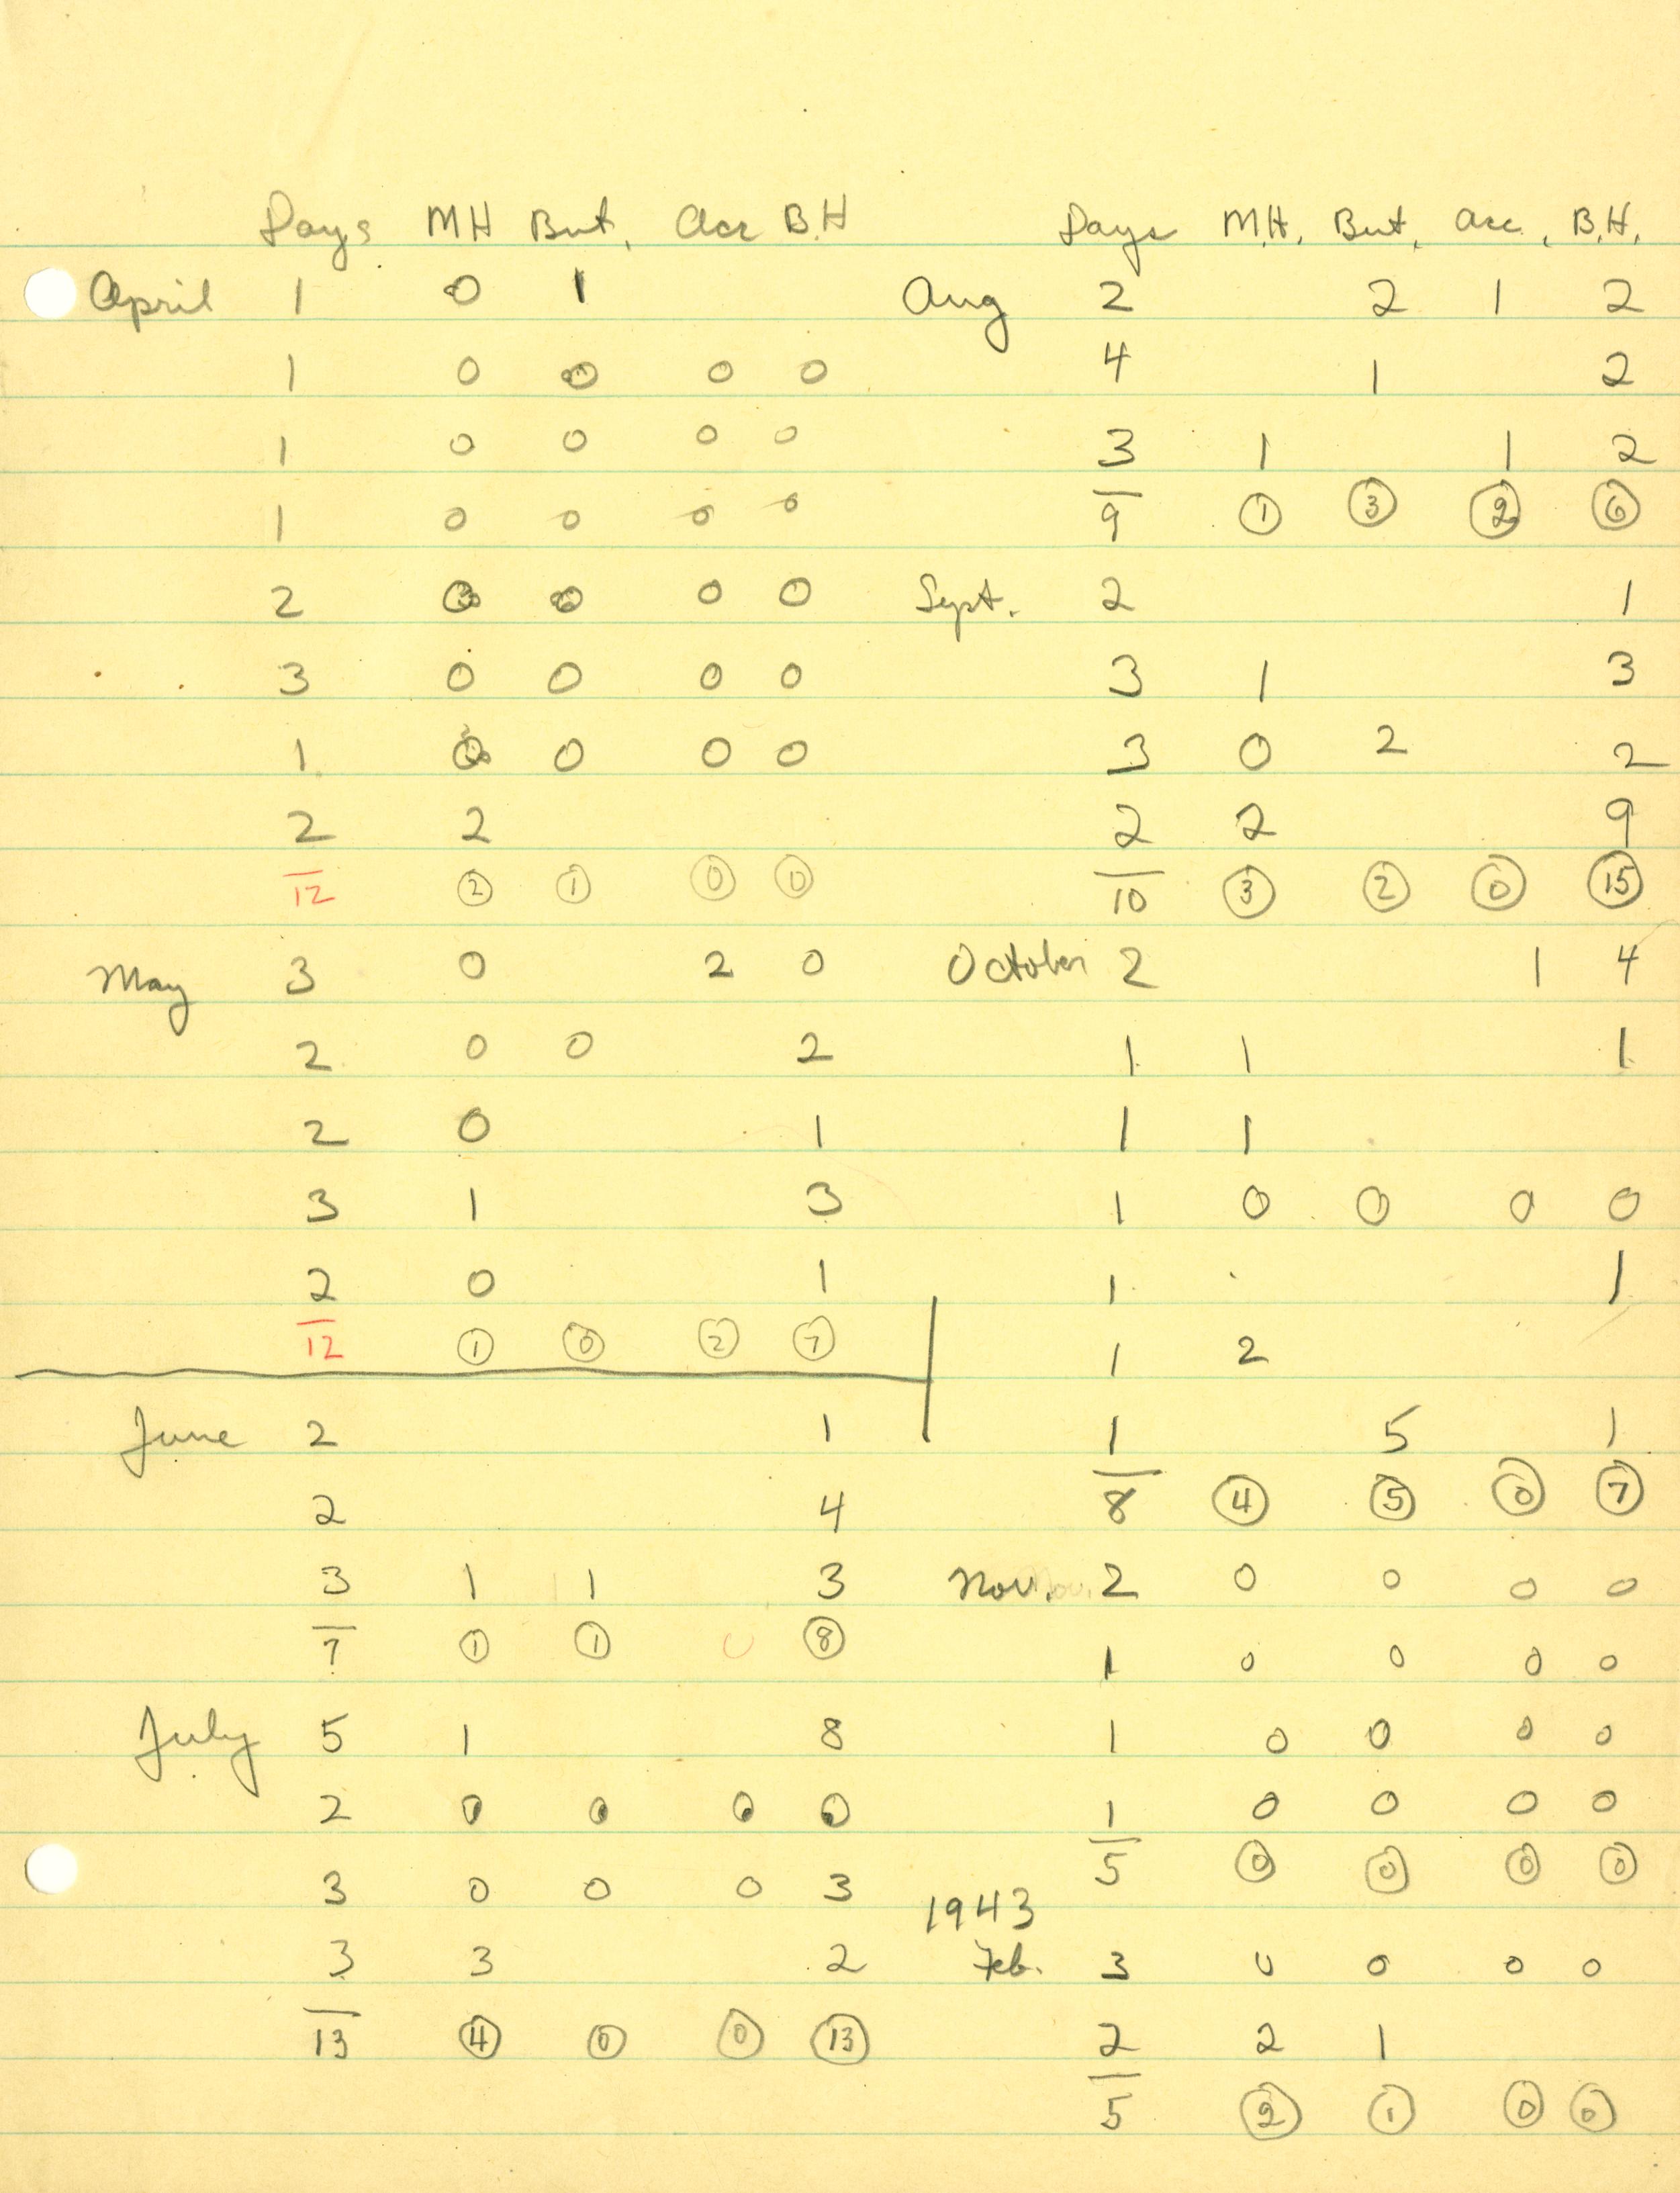 Days MH But. Acc B.H
April 1 0 1
1 0 0 0 0
1 0 0 0 0
1 0 0 0 0
2 0 0 0 0
3 0 0 0 0
1 0 0 0 0
2 2
12 2 1 0 0
May 3 0 2 0
2 0 0 2
2 0 1
3 1 3
2 0 1
12 1 0 2 7
June 2 1
2 4
3 1 1 3
7 1 1 0 8
July 5 1 8
2 0 0 0 0
3 0 0 0 3
3 3 2
13 4 0 0 13
Days M.H. But. Acc. B.H.
Aug 2 2 1 2
4 1 2
3 1 1 2
9 1 3 2 6
Sept. 2 1
3 1 3
3 0 2 2
2 2 9
10 3 2 0 15
October 2 1 4
1 1 1
1 1
1 0 0 0 0
1 1
1 2
1 5 1
8 4 5 0 7
Nov. 2 0 0 0 0
1 0 0 0 0
1 0 0 0 0
1 0 0 0 0
5 0 0 0 0
1943
Feb. 3 0 0 0 0
2 2 1
5 2 1 0 0